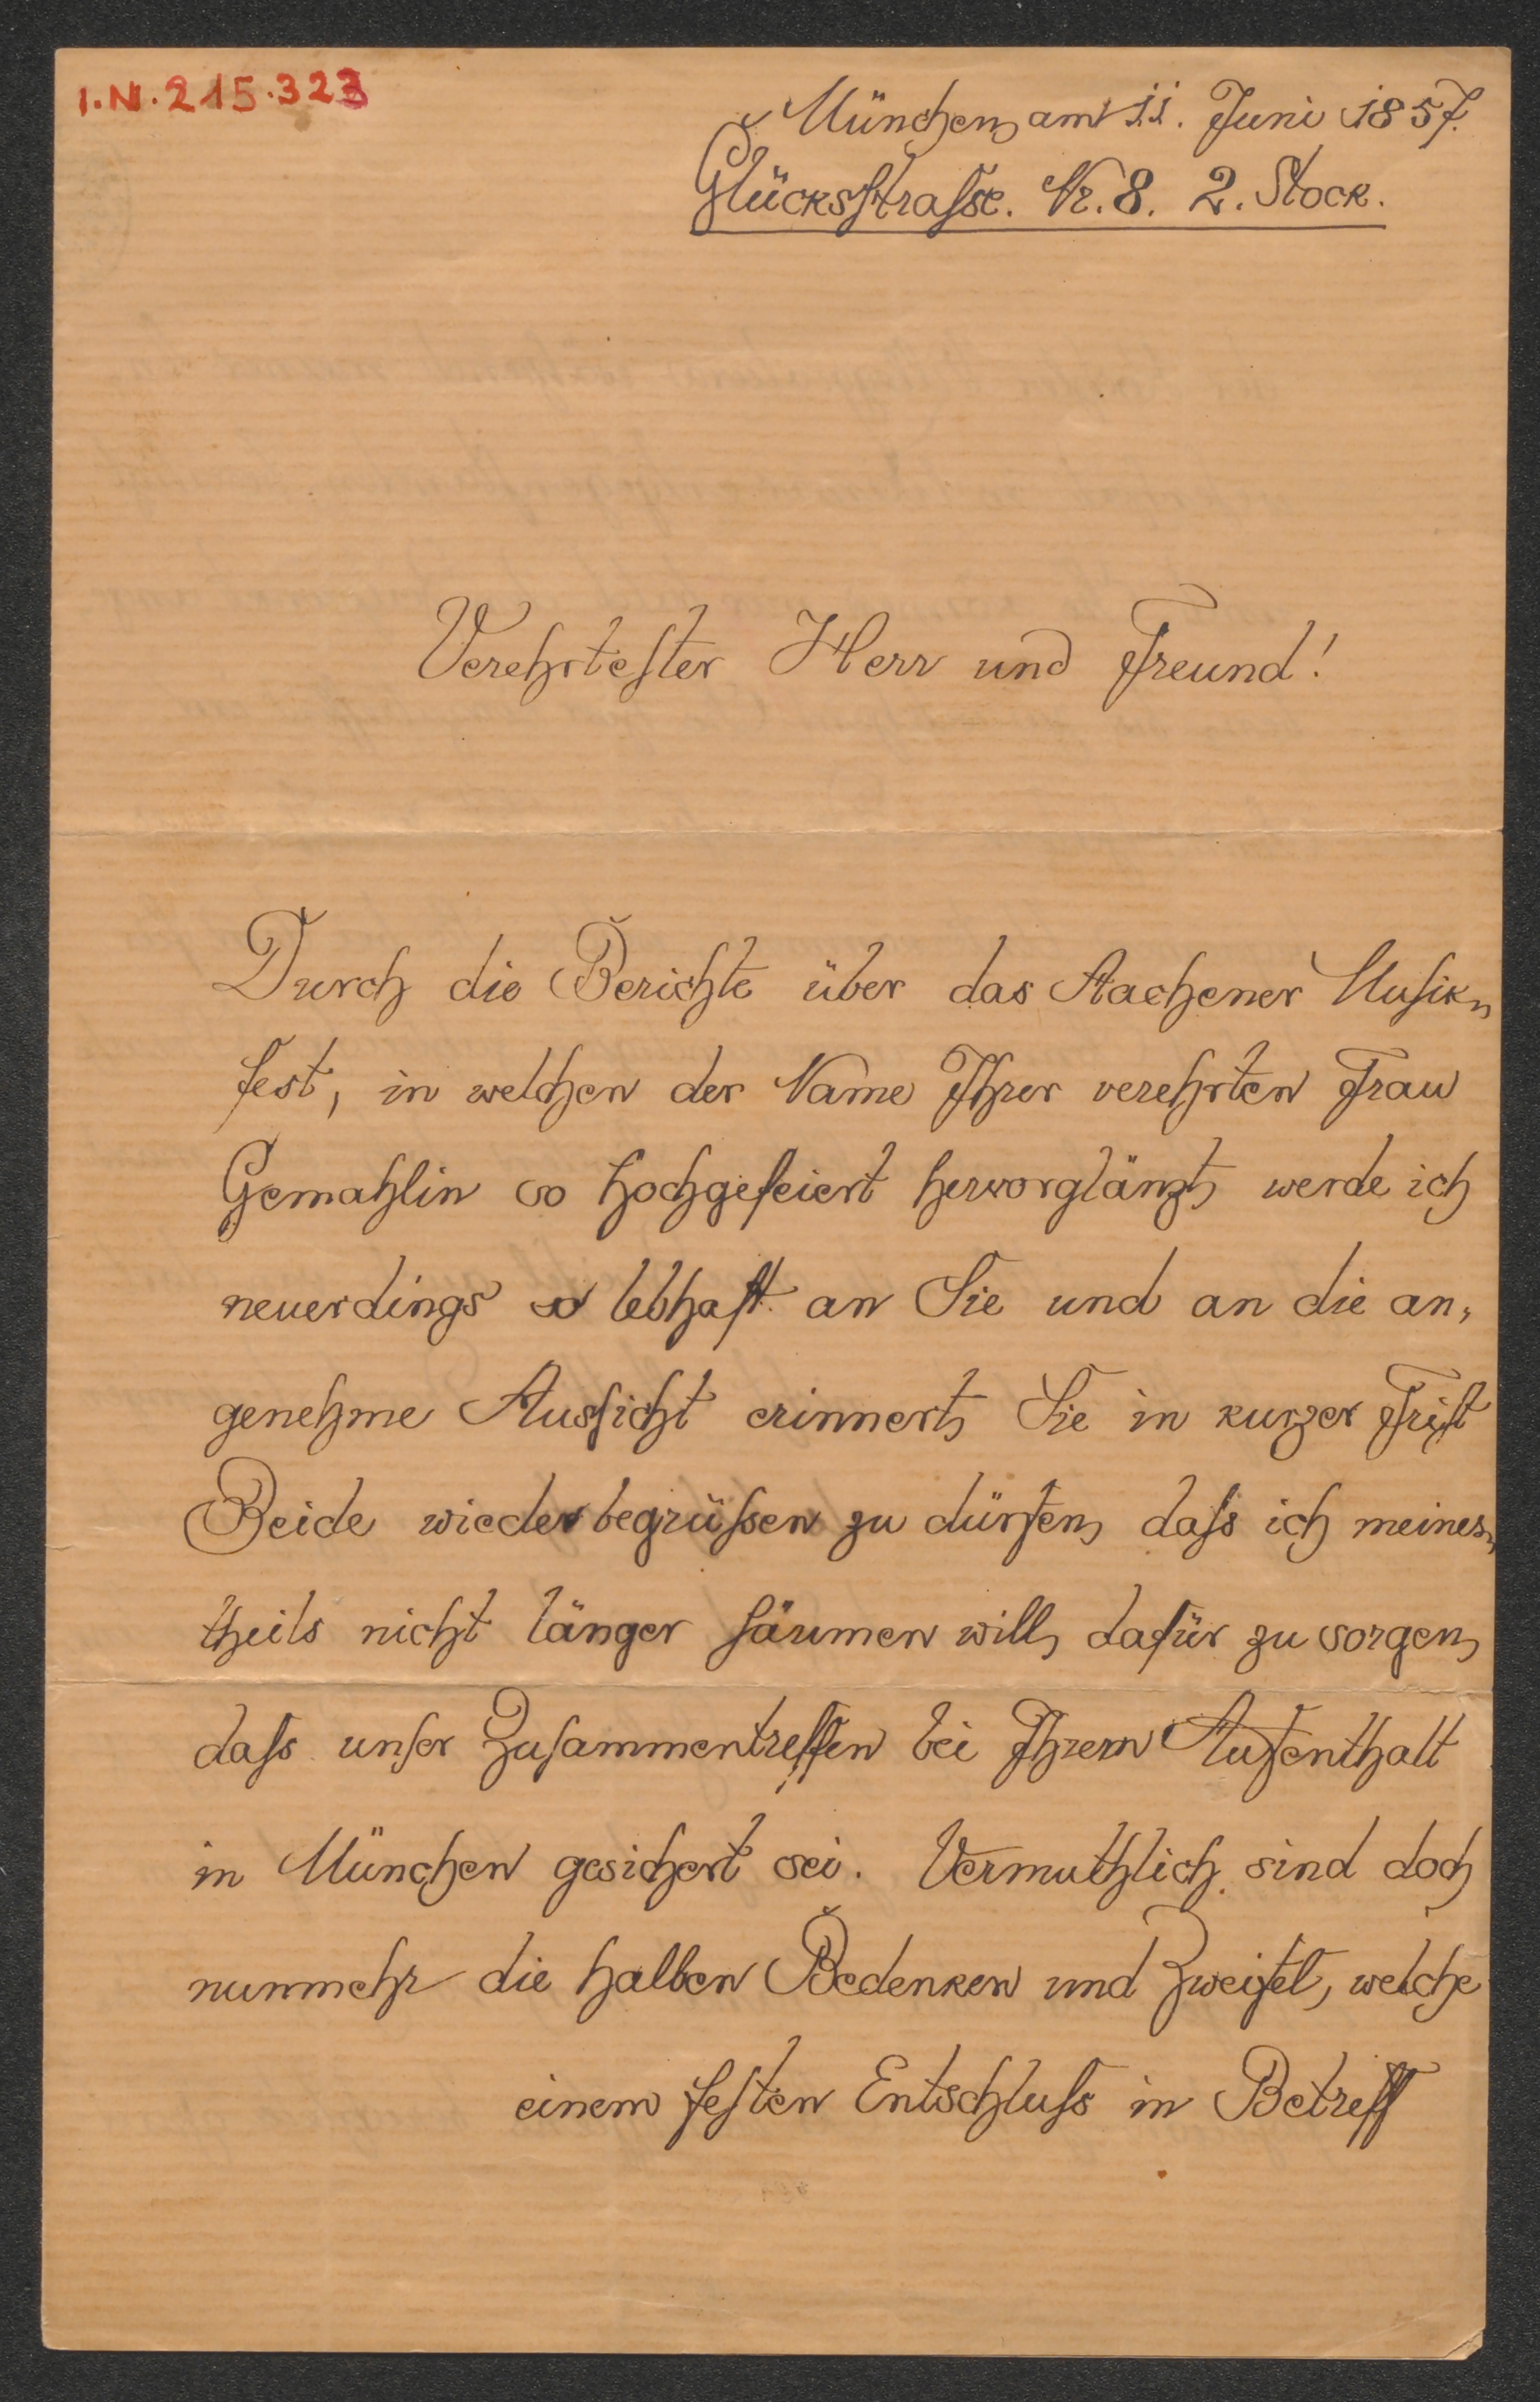 I.N. 215.323
München, am 11. Juni 1857.
Glücksstrasse. Nr. 8. 2. Stock.
Verehrtester Herr und Freund!
Durch die Berichte über das Aachener Musik-
fest, in welchen der Name Ihrer verehrten Frau
Gemahlin so hochgefeiert hervorglänzt, werde ich
neuerdings so lebhaft an Sie und an die an-
genehme Aussicht erinnert, Sie in kurzer Frist
Beide wiederbegrüssen zu dürfen, dass ich meines-
theils nicht länger säumen will, dafür zu sorgen,
dass unser Zusammentreffen bei Ihrem Aufenthalt
in München gesichert sei. Vermuthlich sind doch
nunmehr die halben Bedenken und Zweifel, welche
einem festen Entschluss in Betreff